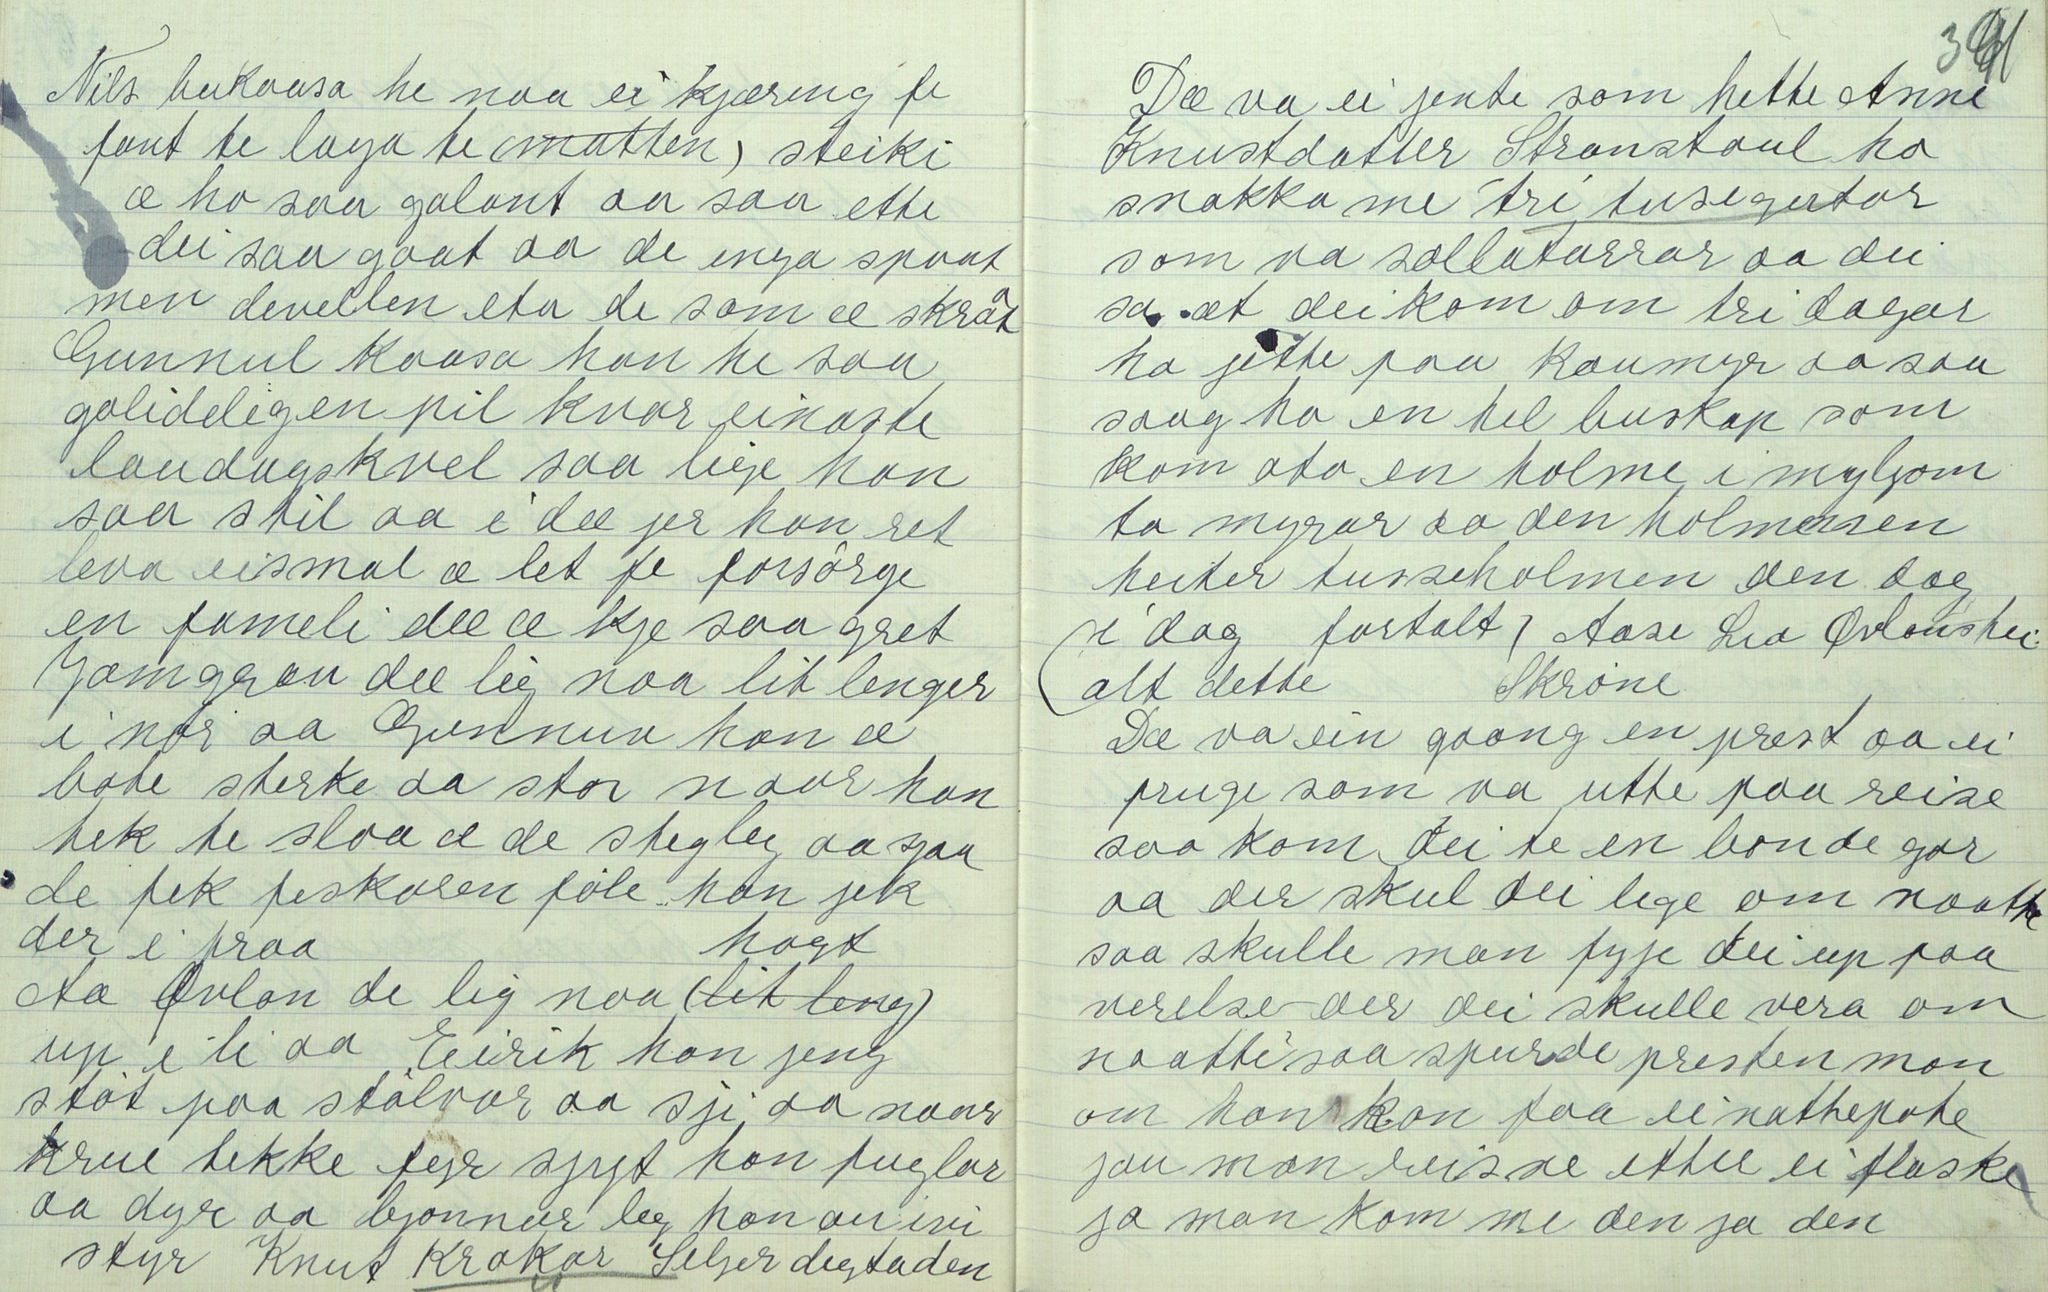 Nils bukaasa he naa ei kjæring fe
fant te laga te (matten) steiki
æ ho saa galant aa saa ette
dei saa gaat aa de inga spaat
men devellen eta de som æ skrât
Gunnul Kaasa han he saa
galiddelig en pil kvar einaste
laudagskvel saa lige han
saa stil aa i dæ jer han ret
leva eismal æ let fe forsörge
en fameli dæ æ kje saa gret
Jamgrau dæ lig naa lit lenger
i nör aa Gunnuv han æ
bate sterke aa stor naar han
tek te slaa æ de stegleg aa sjaa
de fek feskaren föle han jek
der i fraa
hogt
Aa Övlan de lig naa (lit leng)
up i li aa Eeirik han jeng
stöt paa stölvar aa sji aa naar
krue tekke fyr spyt han fuglar
aa dyr aa bjonnar leg han au ivi
styr Knut Krokar Seljerdegtaden
341
Dæ va ei jente som hette Anne
Knustdatter Stranstaul ho
snakka me tri tusegutar
som va sollatarrar aa dei
sa at dei kom om tri dagar
ho jette paa Kaumyr aa saa
saag ho en hel buskap som
kom ata en holme i myljom
to myrar aa den holmansen
heiter tusseholmen den dag
i dag fortalt) Aase Lia Övlanshei
(alt dette Skröne
Dæ va ein goong en prest aa ei
fruge som va utte paa reise
saa kom dei te en bonde gar
aa der skul dei lige om naatte
saa skulle man fyje dei up paa
verelse der dei skulle vera om
naatte saa spurde presten man
om han kan faa ei nattepote
jau man reisae ettee ei flaske
ja man kom me den ja den